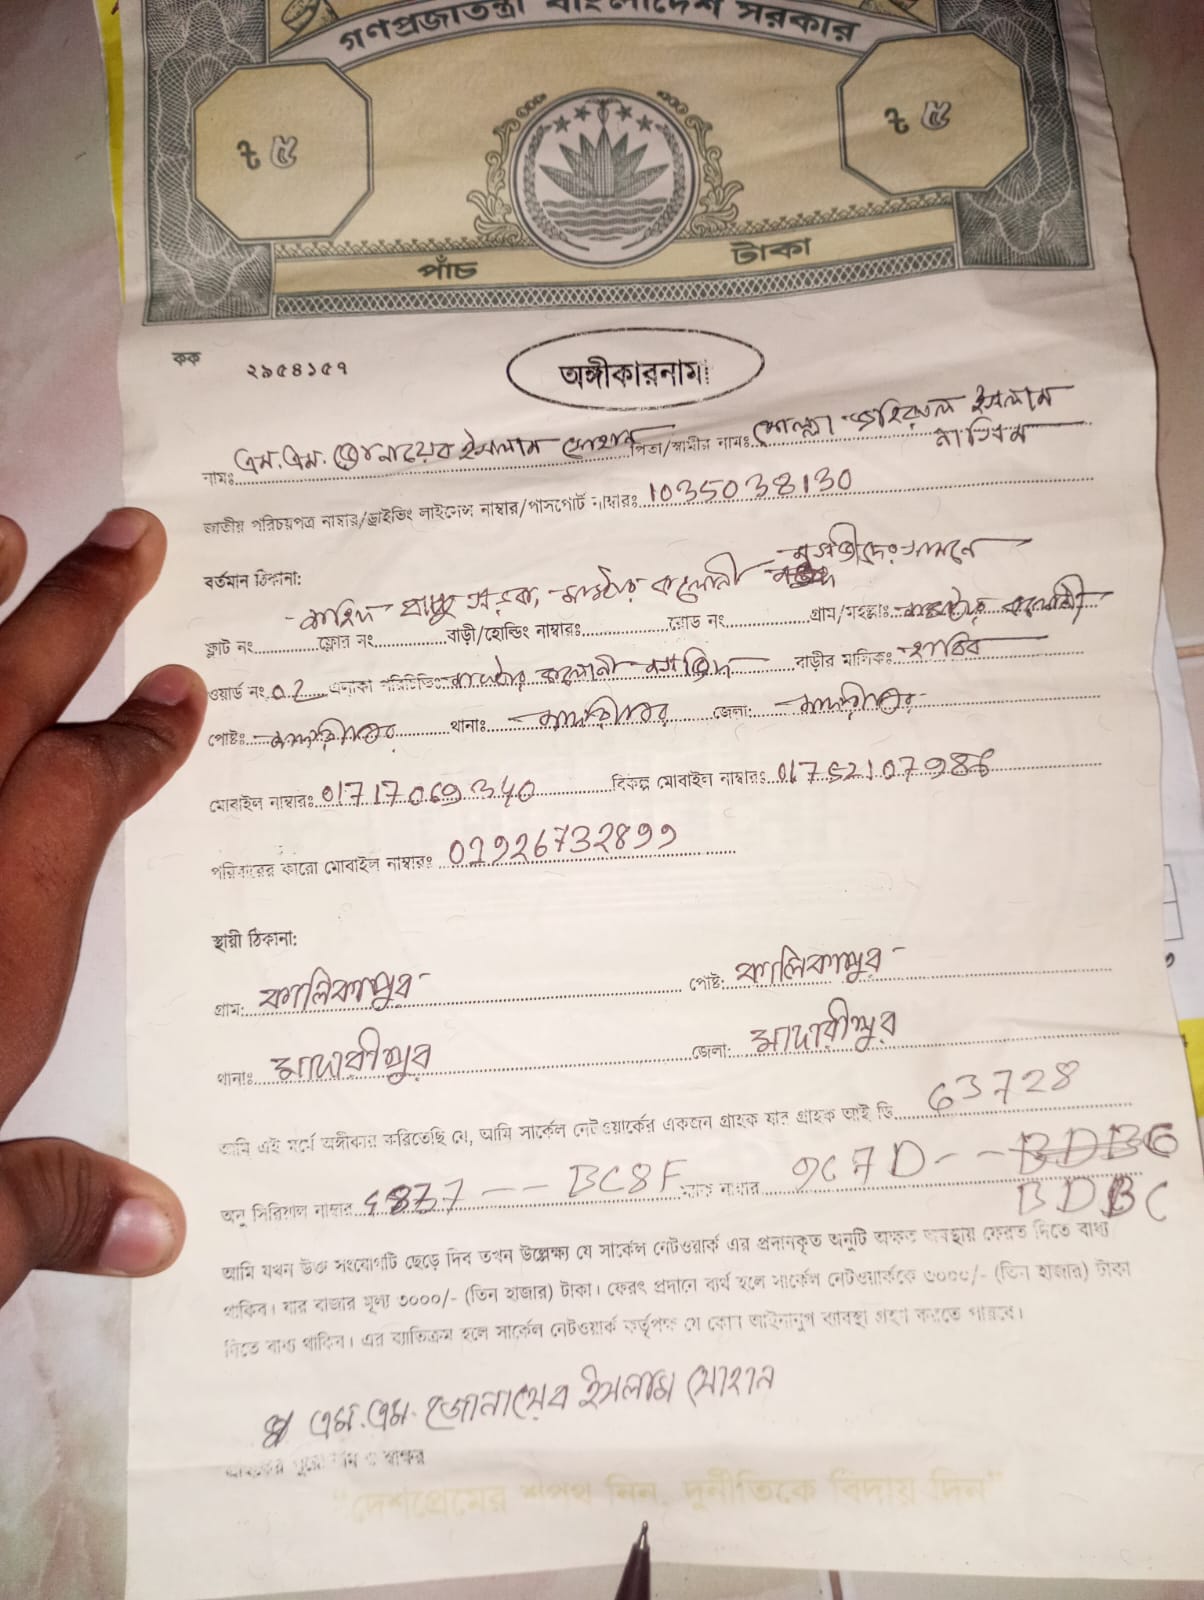 গণপ্রজাতন্ত্রী বাংলাদেশ সরকার
৳ ৫ ৳ ৫
পাঁচ টাকা
কক ২৯৫৪১৫৭
অঙ্গীকারনামা
নামঃ এম.এম. জোনায়েব ইসলাম সোহান পিতা/স্বামীর নামঃ মোল্লা জহিরুল ইসলাম
জাতীয় পরিচয়পত্র নাম্বার/ড্রাইভিং লাইসেন্স নাম্বার/পাসপোর্ট নাম্বারঃ 1035038130
বর্তমান ঠিকানা:
সড়ক, মাস্টার কলোনী সামনে
ফ্লাট নং ফ্লোর নং বাড়ী/হোল্ডিং নাম্বারঃ রোড নং গ্রাম/মহল্লাঃ মাস্টার কলোনী
ওয়ার্ড নং 02 এলাকা পরিচিতিঃ মাস্টার কলোনী মসজিদ বাড়ীর মালিকঃ
পোষ্টঃ মাদারীপুর থানাঃ মাদারীপুর জেলা: মাদারীপুর
মোবাইল নাম্বারঃ 01717069340 বিকল্প মোবাইল নাম্বারঃ
পরিবারের কারো মোবাইল নাম্বারঃ
স্থায়ী ঠিকানা:
গ্রাম: কালিকাপুর পোষ্ট: কালিকাপুর
থানাঃ মাদারীপুর জেলা: মাদারীপুর
আমি এই মর্মে অঙ্গীকার করিতেছি যে, আমি সার্কেল নেটওয়ার্কের একজন গ্রাহক যার গ্রাহক আই ডি 63728
অনু সিরিয়াল নাম্বার 4877 --- BC8F ম্যাক নাম্বার 9C7D -- BDBC
BDBC
আমি যখন উক্ত সংযোগটি ছেড়ে দিব তখন উল্লেক্ষ্য যে সার্কেল নেটওয়ার্ক এর প্রদানকৃত অনুটি অক্ষত অবস্থায় ফেরত দিতে বাধ্য
থাকিব। যার বাজার মূল্য ৩০০০/- (তিন হাজার) টাকা। ফেরৎ প্রদানে ব্যর্থ হলে সার্কেল নেটওয়ার্ককে ৩০০০/- (তিন হাজার) টাকা
দিতে বাধ্য থাকিব। এর ব্যাতিক্রম হলে সার্কেল নেটওয়ার্ক কর্তৃপক্ষ যে কোন আইনানুগ ব্যাবস্থা গ্রহণ করতে পারবে।
এম.এম. জোনায়েব ইসলাম সোহান
গ্রাহকের পুরো নাম ও স্বাক্ষর
"দেশপ্রেমের শপথ নিন, দুর্নীতিকে বিদায় দিন"